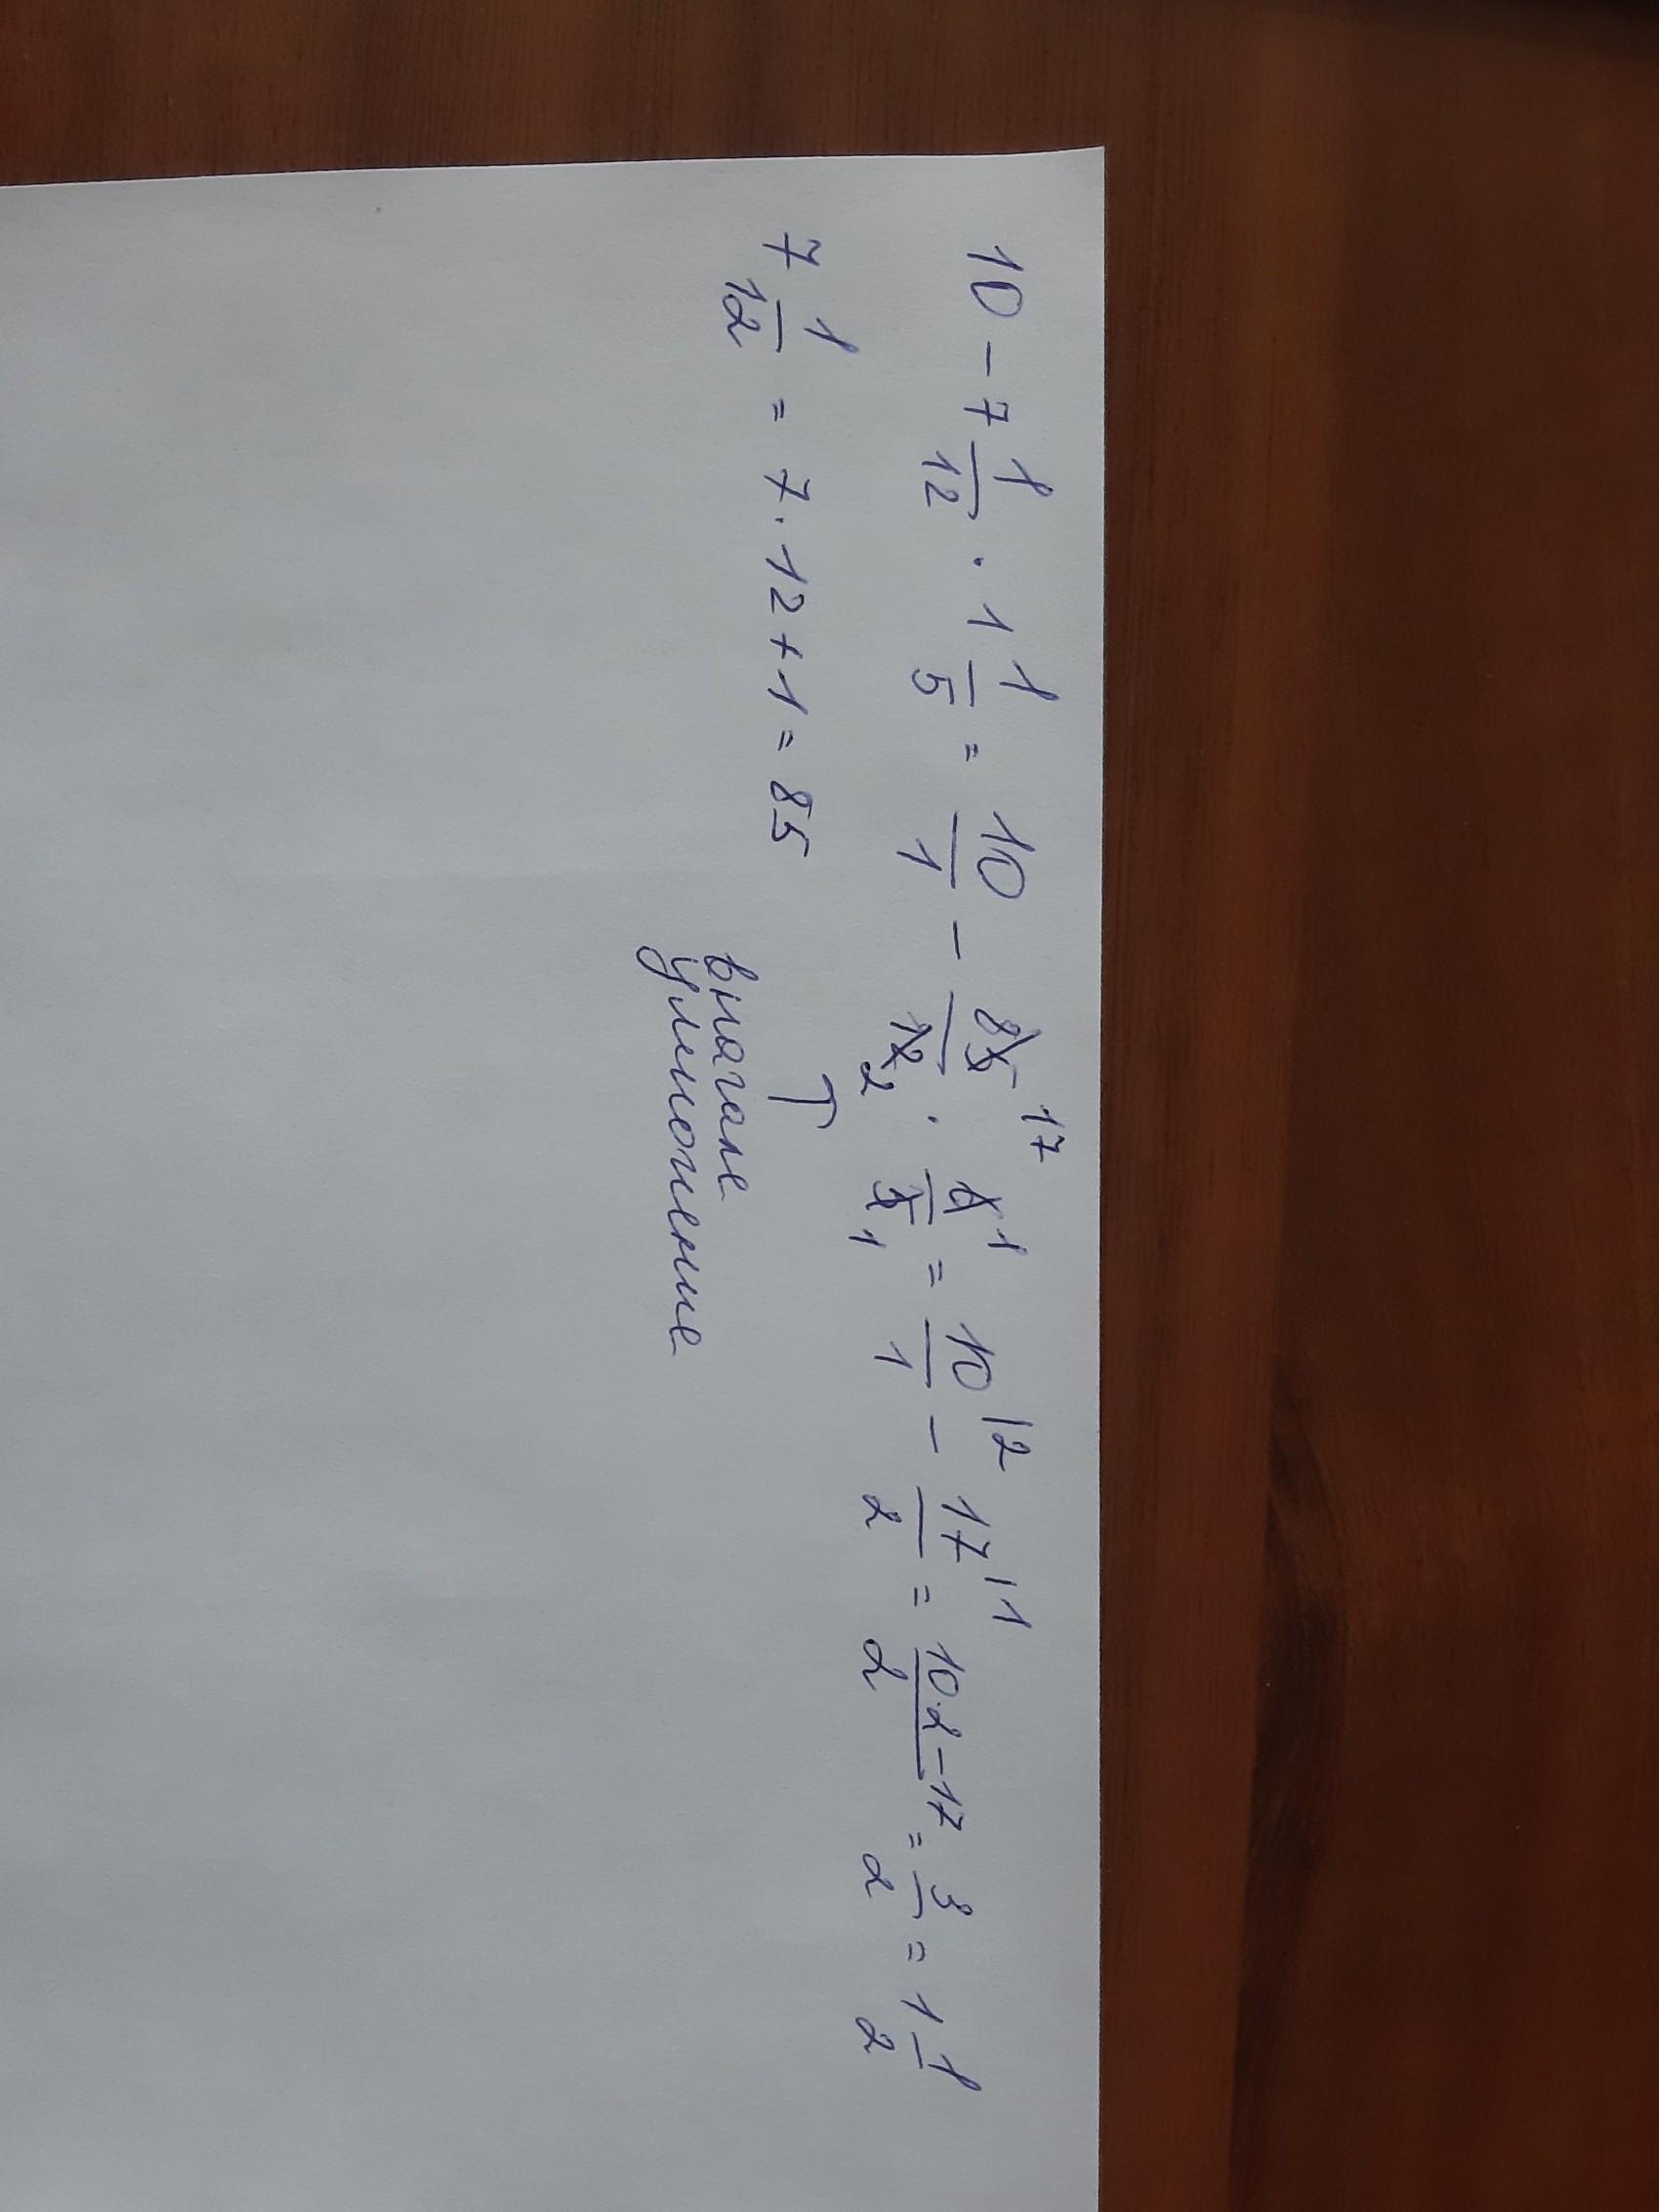 10 - 7 1/12 · 1 1/5 = 10/1 - 85/12 17 2 · 6/5 1 1 = 10/1 |2 - 17/2 |1 = 10·2-17/2 = 3/2 = 1 1/2
7 1/12 = 7·12+1=85
↑
вначале
умножение